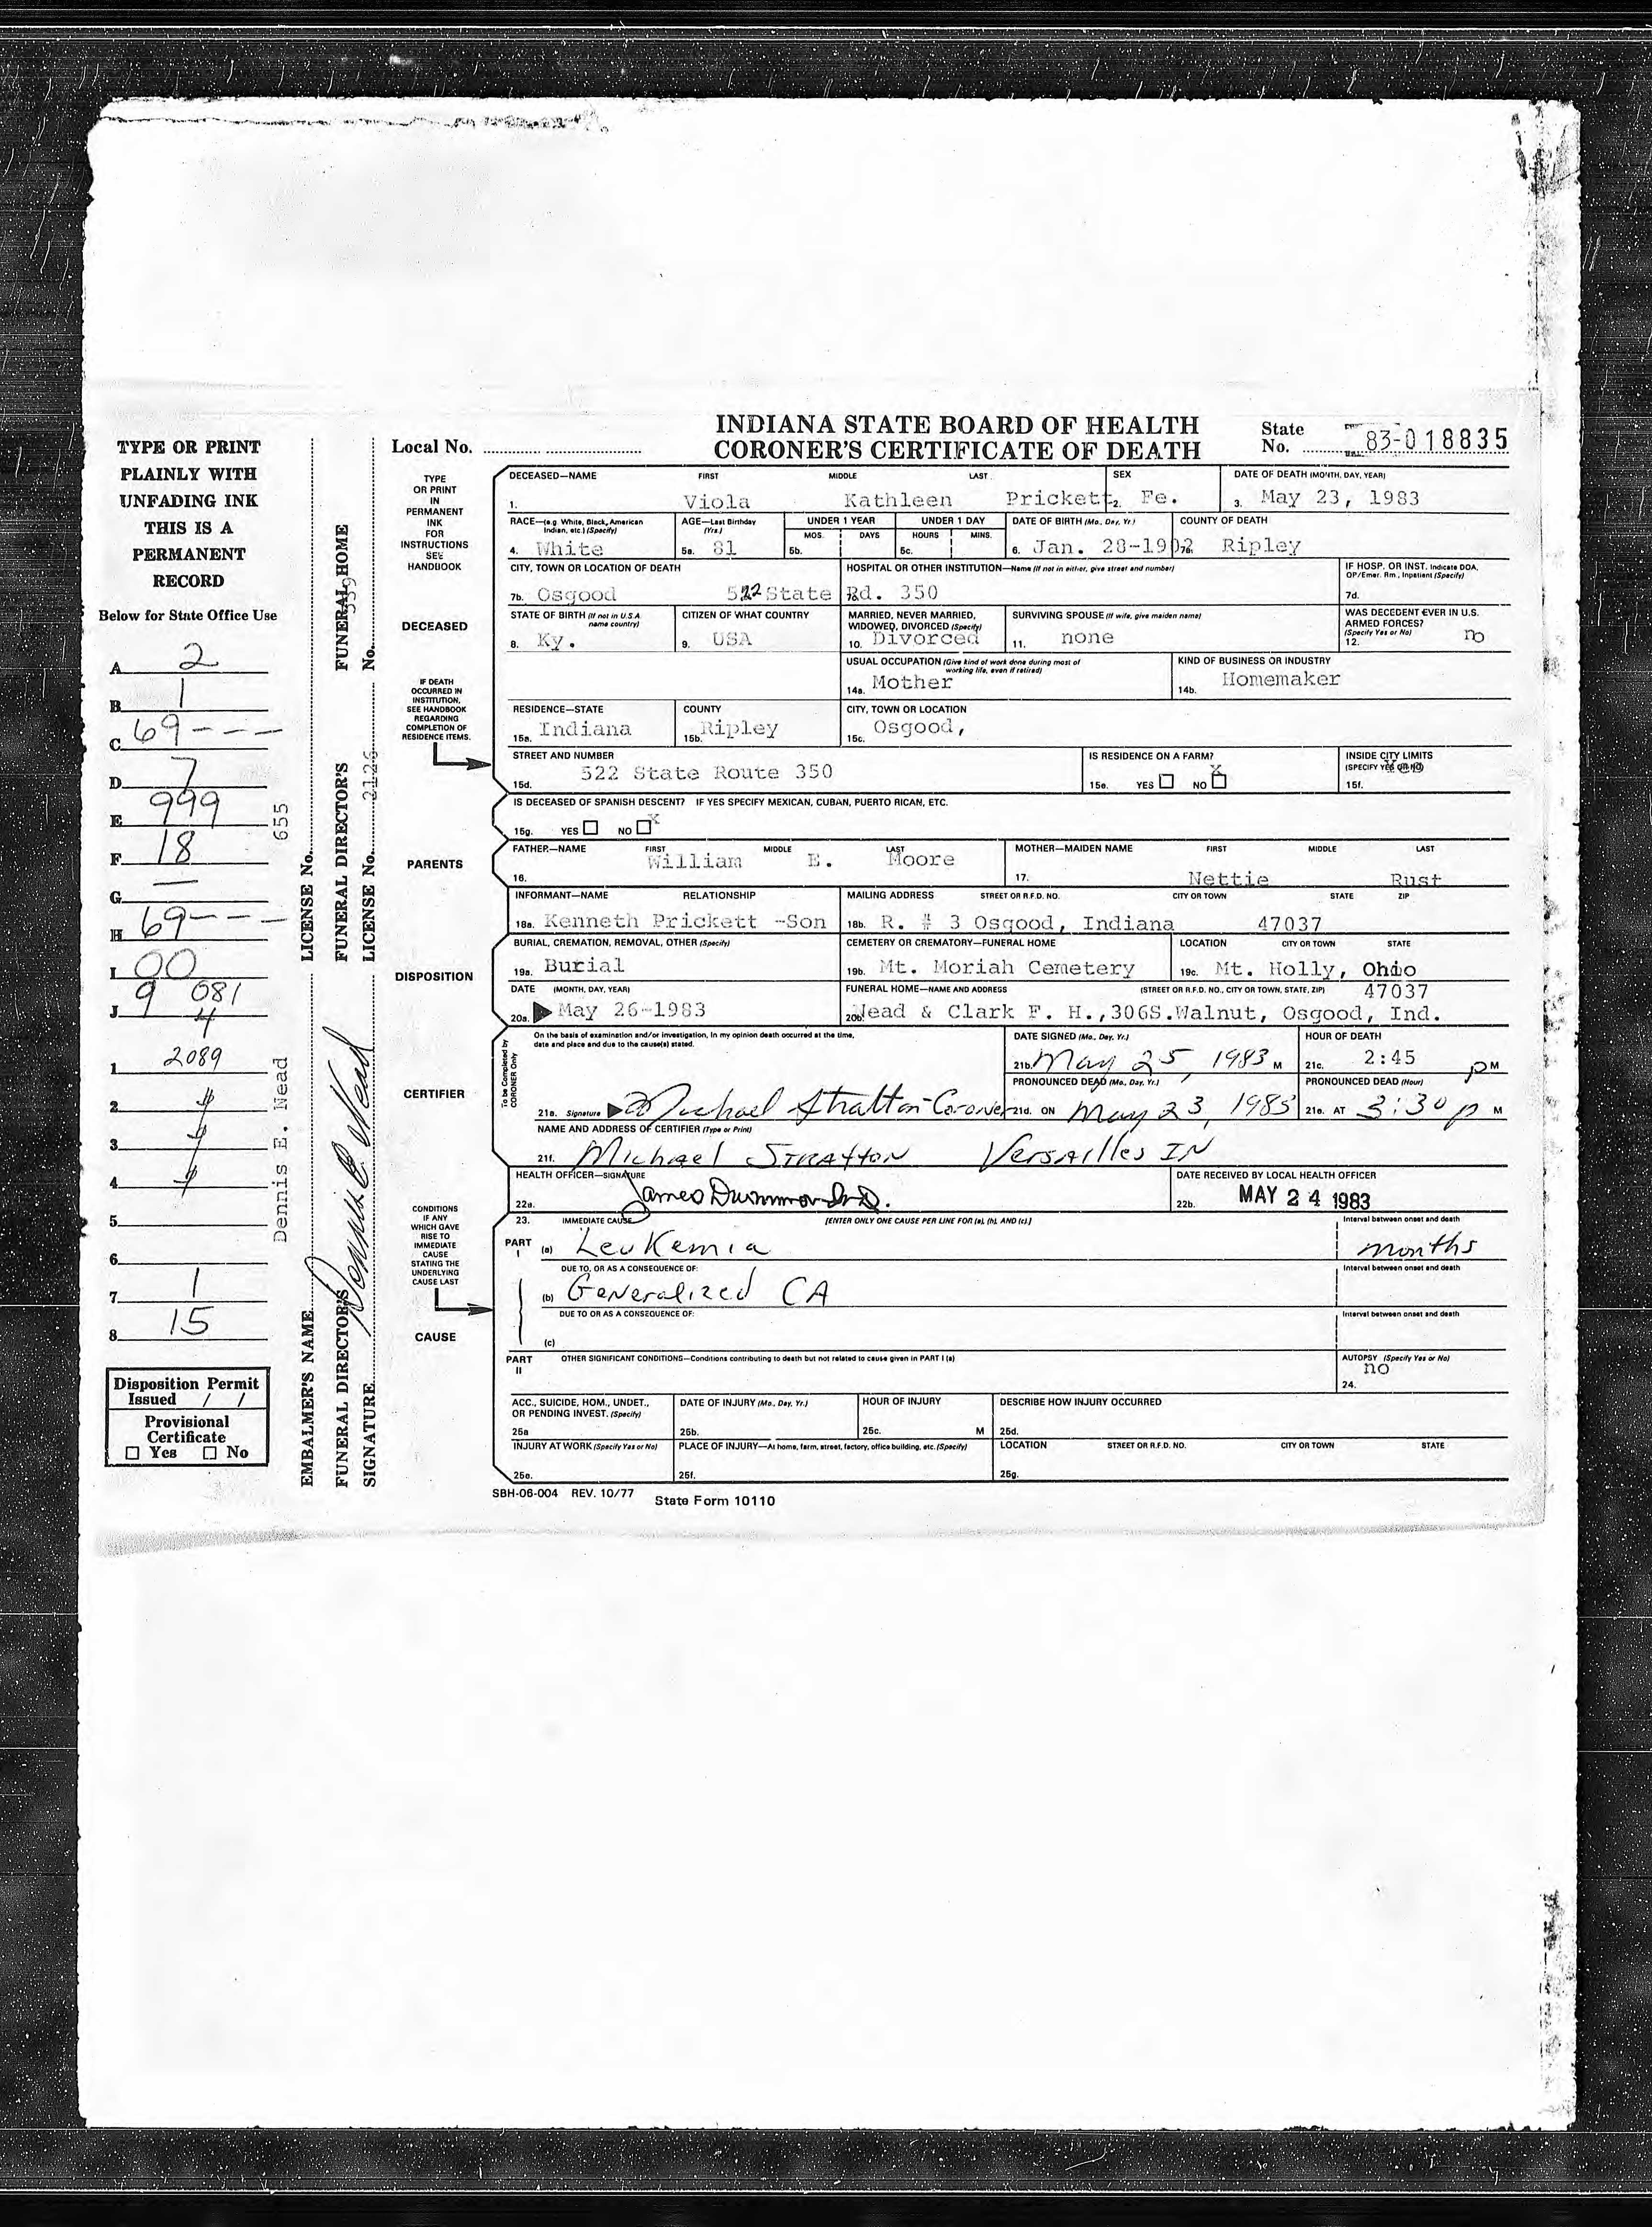 INDIANA STATE BOARD OF HEALTH
CORONER'S CERTIFICATE OF DEATH
Local No.
State No. 83-018835
TYPE OR PRINT
PLAINLY WITH
UNFADING INK
THIS IS A
PERMANENT
RECORD
Below for State Office Use
A 2
B 1
C 69---
D 7
E 999
F 18
G —
H 69---
I 00
J 9 081
4
1 2089
2
3
4
5
6
7 1
8 15
Disposition Permit
Issued / /
Provisional
Certificate
☐ Yes ☐ No
EMBALMER'S NAME Dennis E. Nead LICENSE No. 655
FUNERAL DIRECTOR'S SIGNATURE Dennis E Nead FUNERAL DIRECTOR'S LICENSE No. 2126 FUNERAL HOME No. 559
TYPE
OR PRINT
IN
PERMANENT
INK
FOR
INSTRUCTIONS
SEE
HANDBOOK
DECEASED
IF DEATH
OCCURRED IN
INSTITUTION,
SEE HANDBOOK
REGARDING
COMPLETION OF
RESIDENCE ITEMS.
PARENTS
DISPOSITION
CERTIFIER
CONDITIONS
IF ANY
WHICH GAVE
RISE TO
IMMEDIATE
CAUSE
STATING THE
UNDERLYING
CAUSE LAST
CAUSE
DECEASED—NAME FIRST MIDDLE LAST SEX DATE OF DEATH (MONTH, DAY, YEAR)
1. Viola Kathleen Prickett 2. Fe. 3. May 23, 1983
RACE—(e.g. White, Black, American Indian, etc.) (Specify) AGE—Last Birthday (Yrs.) UNDER 1 YEAR UNDER 1 DAY DATE OF BIRTH (Mo., Day, Yr.) COUNTY OF DEATH
MOS. DAYS HOURS MINS.
4. White 5a. 81 5b. 5c. 6. Jan. 28-1902 7a. Ripley
CITY, TOWN OR LOCATION OF DEATH HOSPITAL OR OTHER INSTITUTION—Name (If not in either, give street and number) IF HOSP. OR INST. Indicate DOA, OP/Emer. Rm., Inpatient (Specify)
7b. Osgood 522 State Rd. 350 7d.
STATE OF BIRTH (If not in U.S.A. name country) CITIZEN OF WHAT COUNTRY MARRIED, NEVER MARRIED, WIDOWED, DIVORCED (Specify) SURVIVING SPOUSE (If wife, give maiden name) WAS DECEDENT EVER IN U.S. ARMED FORCES? (Specify Yes or No)
8. Ky. 9. USA 10. Divorced 11. none 12. no
USUAL OCCUPATION (Give kind of work done during most of working life, even if retired) KIND OF BUSINESS OR INDUSTRY
14a. Mother 14b. Homemaker
RESIDENCE—STATE COUNTY CITY, TOWN OR LOCATION
15a. Indiana 15b. Ripley 15c. Osgood,
STREET AND NUMBER IS RESIDENCE ON A FARM? INSIDE CITY LIMITS (SPECIFY YES OR NO)
15d. 522 State Route 350 15e. YES ☐ NO ☐ X 15f.
IS DECEASED OF SPANISH DESCENT? IF YES SPECIFY MEXICAN, CUBAN, PUERTO RICAN, ETC.
15g. YES ☐ NO ☐ X
FATHER—NAME FIRST MIDDLE LAST MOTHER—MAIDEN NAME FIRST MIDDLE LAST
16. William E. Moore 17. Nettie Rust
INFORMANT—NAME RELATIONSHIP MAILING ADDRESS STREET OR R.F.D. NO. CITY OR TOWN STATE ZIP
18a. Kenneth Prickett -Son 18b. R. # 3 Osgood, Indiana 47037
BURIAL, CREMATION, REMOVAL, OTHER (Specify) CEMETERY OR CREMATORY—FUNERAL HOME LOCATION CITY OR TOWN STATE
19a. Burial 19b. Mt. Moriah Cemetery 19c. Mt. Holly, Ohio
DATE (MONTH, DAY, YEAR) FUNERAL HOME—NAME AND ADDRESS (STREET OR R.F.D. NO., CITY OR TOWN, STATE, ZIP) 47037
20a. May 26-1983 20b. Nead & Clark F. H.,306S.Walnut, Osgood, Ind.
To be Completed by CORONER Only
On the basis of examination and/or investigation, in my opinion death occurred at the time, date and place and due to the cause(s) stated.
DATE SIGNED (Mo., Day, Yr.) HOUR OF DEATH
21b. May 25, 1983 M 21c. 2:45 p M
PRONOUNCED DEAD (Mo., Day, Yr.) PRONOUNCED DEAD (Hour)
21a. Signature Michael Stratton-Coroner 21d. ON May 23, 1983 21e. AT 3:30 p M
NAME AND ADDRESS OF CERTIFIER (Type or Print)
21f. Michael Stratton Versailles IN
HEALTH OFFICER—SIGNATURE DATE RECEIVED BY LOCAL HEALTH OFFICER
22a. James Dummond MD. 22b. MAY 24 1983
23. IMMEDIATE CAUSE [ENTER ONLY ONE CAUSE PER LINE FOR (a), (b), AND (c).] Interval between onset and death
PART I (a) Leukemia months
DUE TO, OR AS A CONSEQUENCE OF: Interval between onset and death
(b) Generalized CA
DUE TO OR AS A CONSEQUENCE OF: Interval between onset and death
(c)
PART II OTHER SIGNIFICANT CONDITIONS—Conditions contributing to death but not related to cause given in PART I (a) AUTOPSY (Specify Yes or No)
24. no
ACC., SUICIDE, HOM., UNDET., OR PENDING INVEST. (Specify) DATE OF INJURY (Mo., Day, Yr.) HOUR OF INJURY DESCRIBE HOW INJURY OCCURRED
25a 25b. 25c. M 25d.
INJURY AT WORK (Specify Yes or No) PLACE OF INJURY—At home, farm, street, factory, office building, etc. (Specify) LOCATION STREET OR R.F.D. NO. CITY OR TOWN STATE
25e. 25f. 25g.
SBH-06-004 REV. 10/77 State Form 10110